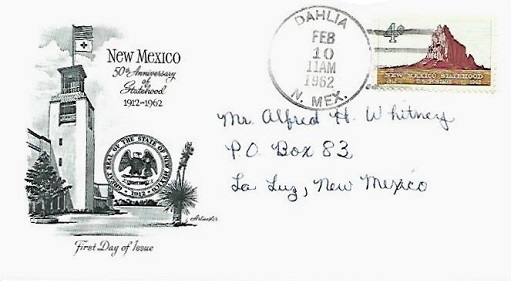 New Mexico
50th Anniversary
of
Statehood
1912-1962
GREAT SEAL OF THE STATE OF NEW MEXICO
1912
Artmaster
First Day of Issue
DAHLIA
FEB
10
11AM
1962
N. MEX.
4¢
NEW MEXICO STATEHOOD
1912
Mr. Alfred H. Whitney
P.O. Box 83
La Luz, New Mexico